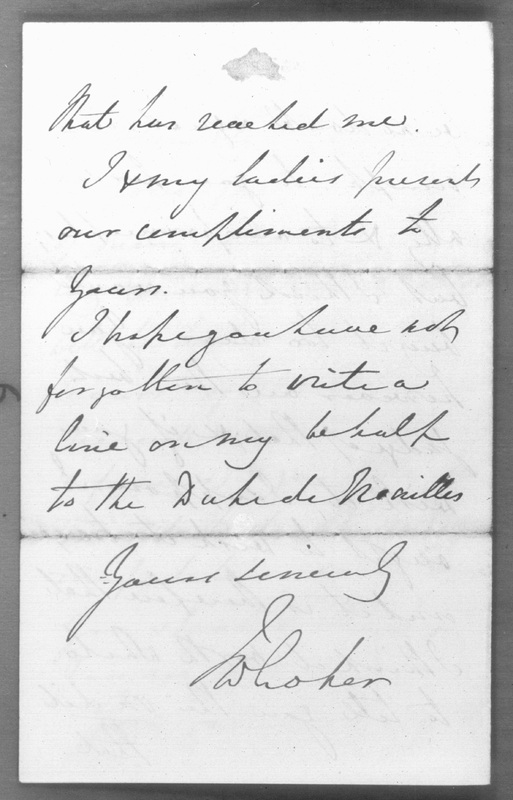 that has reached me.
I & my ladies presents
our compliments to
yours.
I hope you have not
forgotten to write a
line on my behalf
to the Duke de Noailles
Yours sincerely
JWCroker